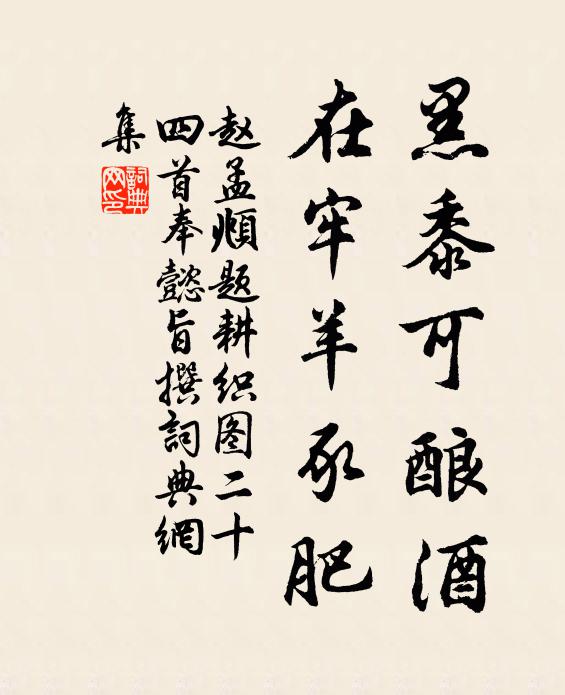 黑黍可酿酒
在牢羊豕肥
赵孟頫题耕织图二十
四首奉懿旨撰詞典網
集
詞典網印